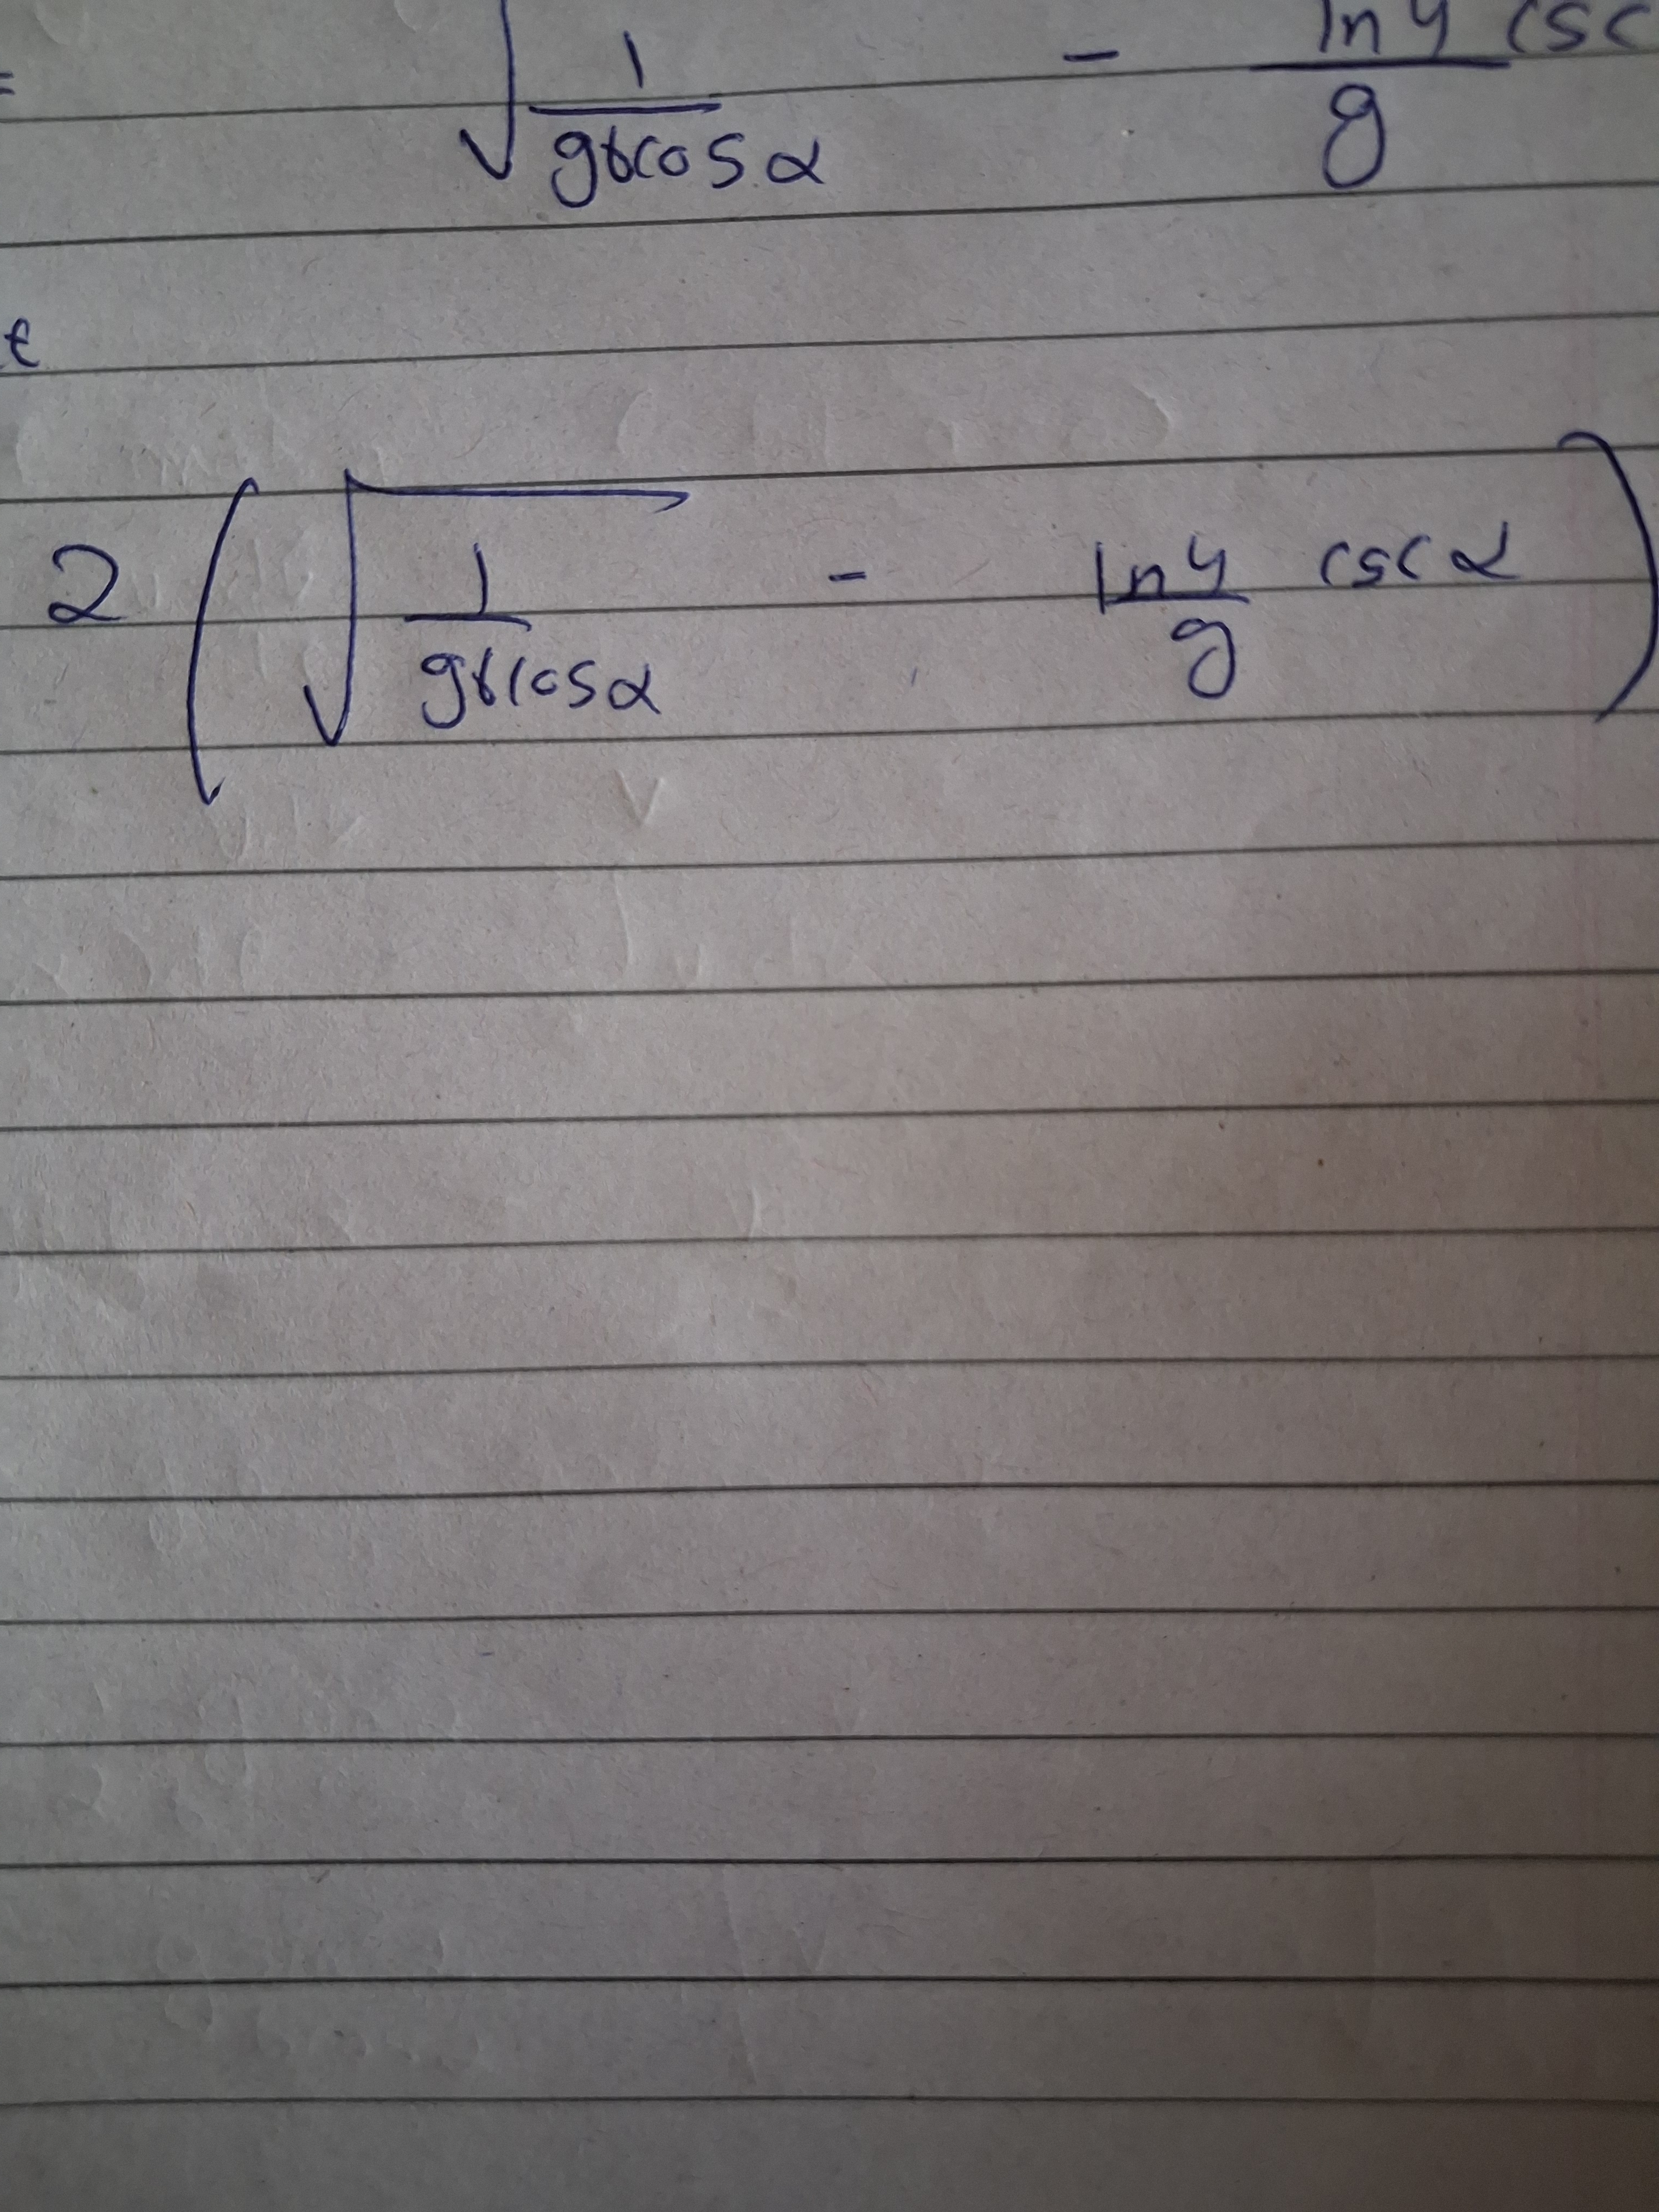 = √(1/(gγcosα)) - (ln4/g) csc
t
2 (√(1/(gγcosα)) - (ln4/g) cscα)